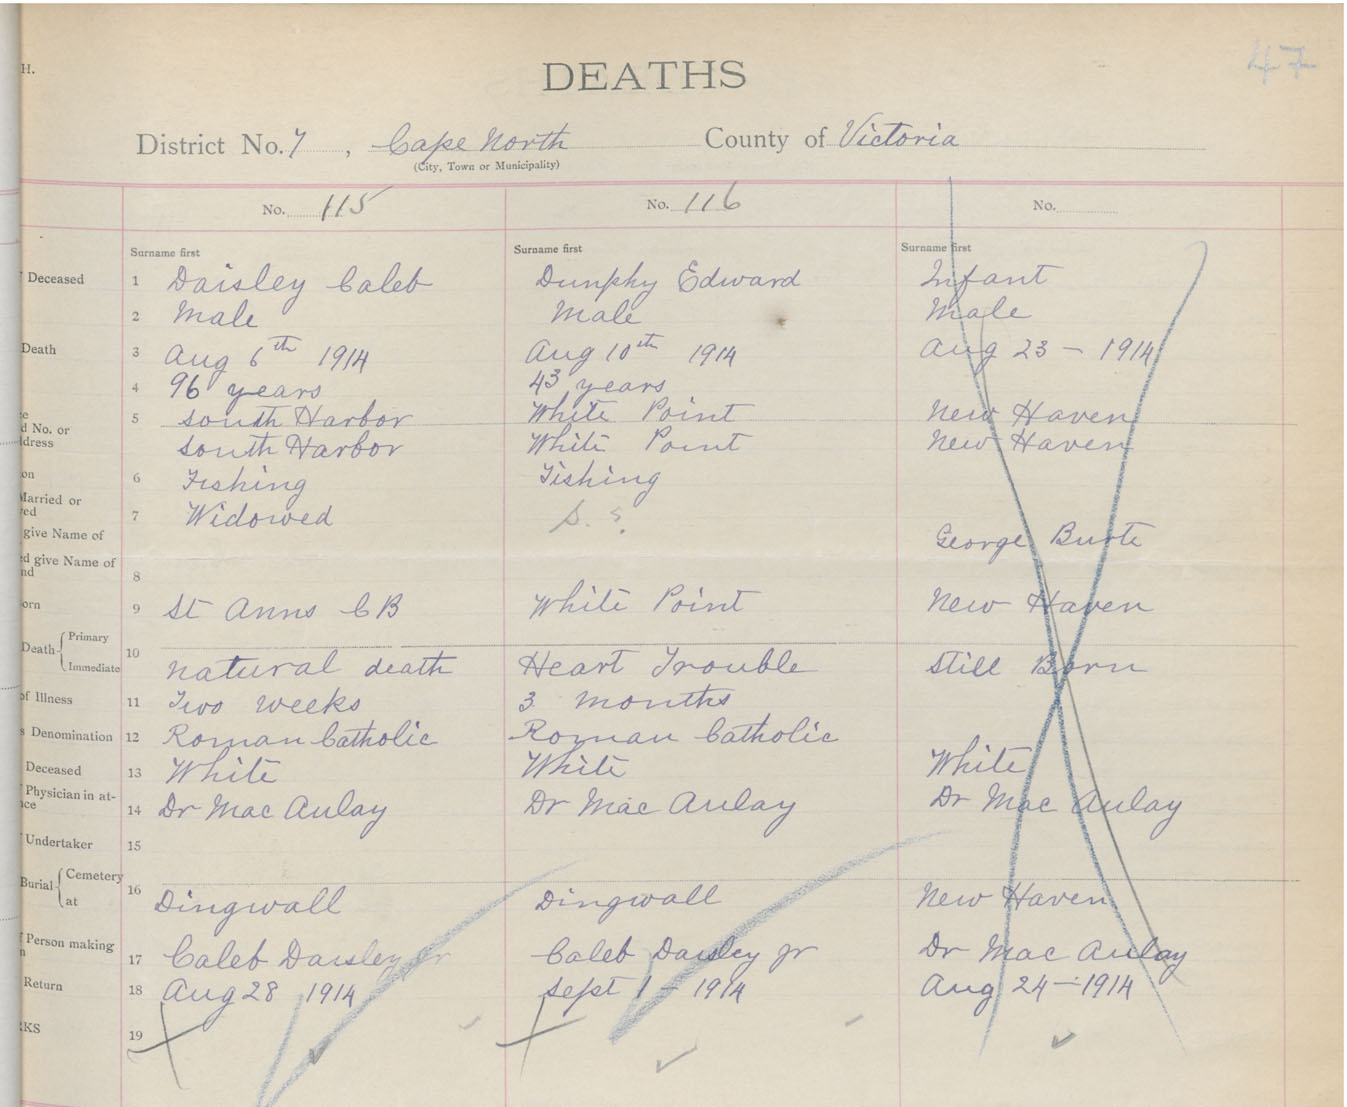 47
H.
DEATHS
District No. 7, Cape North County of Victoria
(City, Town or Municipality)
No. 115 No. 116 No.
Surname first Surname first Surname first
Deceased 1 Daisley Caleb Dunphy Edward Infant
2 Male Male Male
Death 3 Aug 6th 1914 Aug 10th 1914 Aug 23 - 1914
4 96 years 43 years
5 South Harbor White Point New Haven
d No. or
ddress South Harbor White Point New Haven
on 6 Fishing Fishing
Married or
ed 7 Widowed S. ?
give Name of George Burte
ed give Name of
nd 8
orn 9 St Anns CB White Point New Haven
Death Primary
Immediate 10 natural death Heart Trouble Still Born
of Illness 11 Two weeks 3 months
s Denomination 12 Roman Catholic Roman Catholic
Deceased 13 White White White
Physician in at-
nce 14 Dr Mac Aulay Dr Mac Aulay Dr Mac Aulay
Undertaker 15
Burial Cemetery
at 16 Dingwall Dingwall New Haven
Person making
n 17 Caleb Daisley Jr Caleb Daisley Jr Dr Mac Aulay
Return 18 Aug 28 1914 Sept 1 - 1914 Aug 24 - 1914
RKS 19